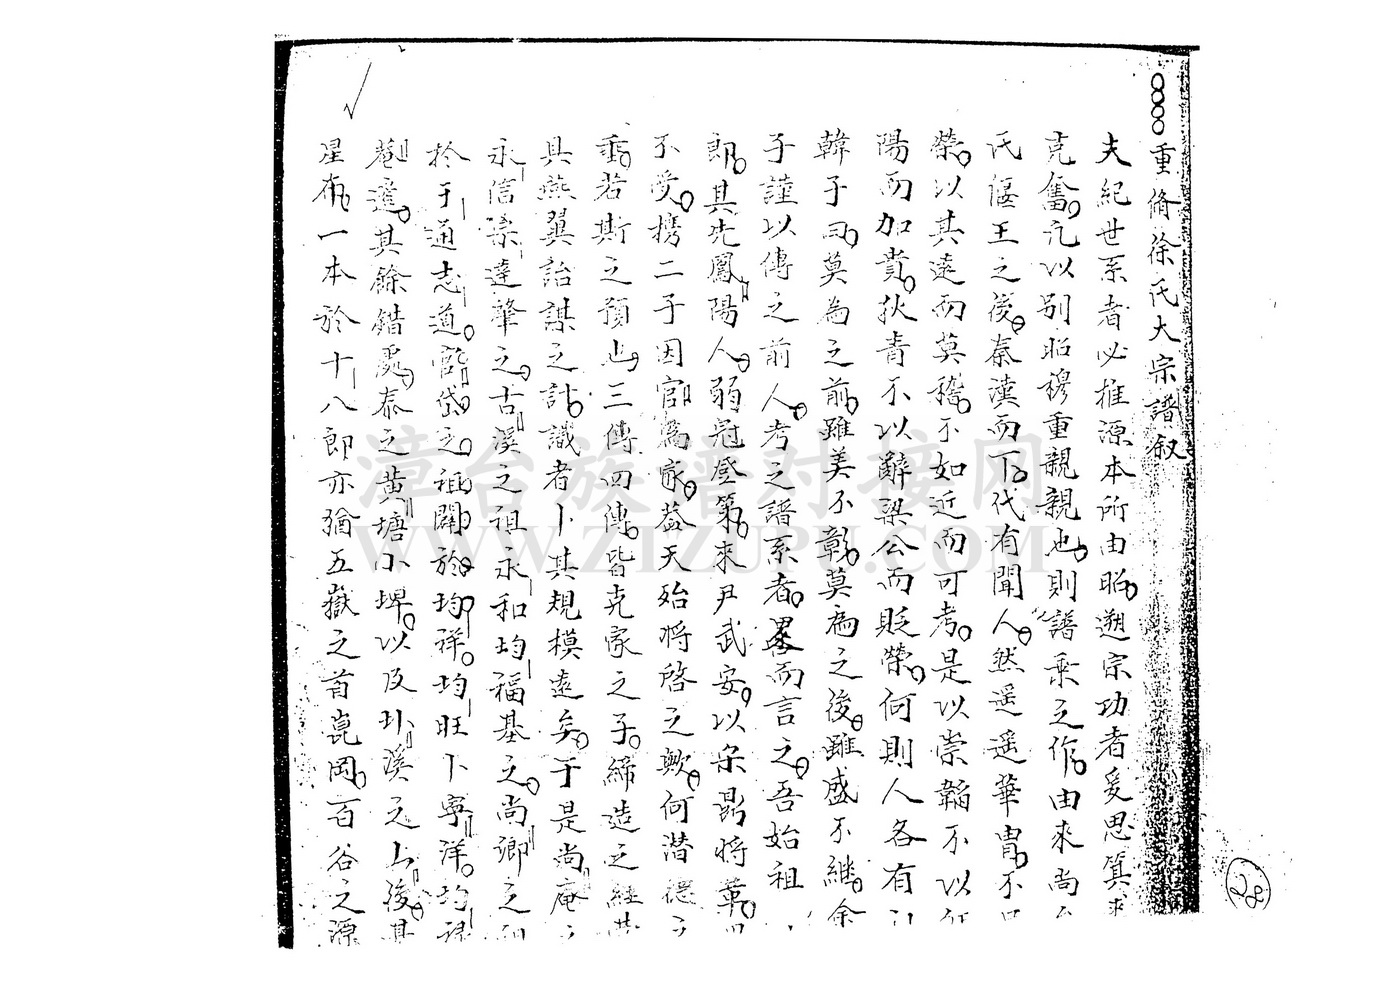 重脩徐氏大宗譜叙
夫紀世系者必推源本所由昭遡宗功者爰思箕裘
克奮凢以别昭穆重親親也則譜乘之作由來尚
氏偃王之後秦漢而下代有聞人然遥遥華胄不
榮以其遠而莫稽不如近而可考是以崇韜不以
陽而加貴狄青不以辭梁公而貶榮何則人各有
韓子曰莫為之前雖美不彰莫為之後雖盛不継余
子謹以傳之前人考之譜系者畧而言之吾始祖
郎其先鳳陽人弱冠登第來尹武安以宋鼎将革
不受携二子因官為家葢天始将啓之歟何潜德之
垂若斯之預也三傳四傳皆克家之子締造之經營
具燕翼詒謀之計識者卜其規模遠矣于是尚庵
永信崇達肇之古溪之祖永和均福基之尚卿之祖
於于通志道官岱之祖開於均祥均旺卜寧洋均
菴達其餘錯處泰之黄塘小埤以及圤溪之上後其
星布一本於十八郎亦猶五嶽之首崑岡百谷之源
漳台族譜对接网
WWW.ZIZUPU.COM
28